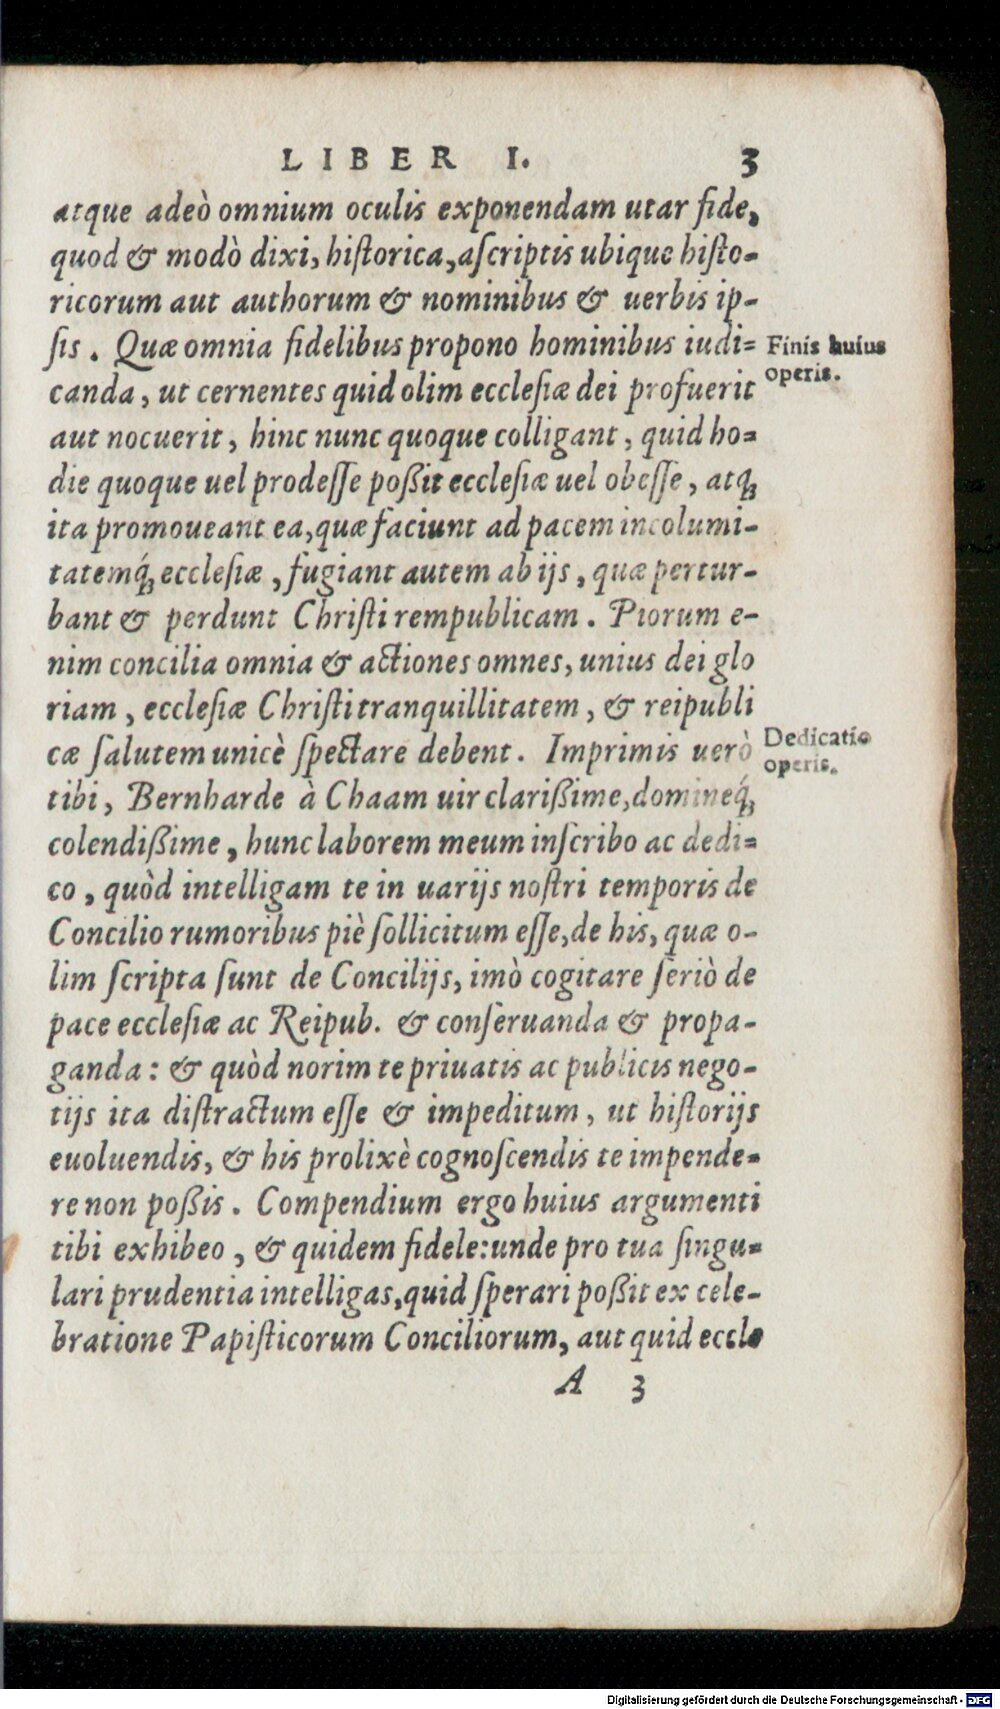 LIBER I. 3
atque adeò omnium oculis exponendam utar fide,
quod & modò dixi, historica, ascriptis ubique histo-
ricorum aut authorum & nominibus & uerbis ip-
sis. Quæ omnia fidelibus propono hominibus iudi=
Finis huius
canda, ut cernentes quid olim ecclesiæ dei profuerit
operis.
aut nocuerit, hinc nunc quoque colligant, quid ho=
die quoque uel prodesse poßit ecclesiæ uel obesse, atq́ꝫ
ita promoueant ea, quæ faciunt ad pacem incolumi-
tatemq́ꝫ ecclesiæ, fugiant autem ab ijs, quæ pertur-
bant & perdunt Christi rempublicam. Piorum e-
nim concilia omnia & actiones omnes, unius dei glo
riam, ecclesiæ Christi tranquillitatem, & reipubli
cæ salutem unicè spectare debent. Imprimis uerò
Dedicatio
operis.
tibi, Bernharde à Chaam uir clarißime, domineq́ꝫ
colendißime, hunc laborem meum inscribo ac dedi=
co, quòd intelligam te in uarijs nostri temporis de
Concilio rumoribus piè sollicitum esse, de his, quæ o-
lim scripta sunt de Concilijs, imò cogitare seriò de
pace ecclesiæ ac Reipub. & conseruanda & propa-
ganda: & quòd norim te priuatis ac publicis nego-
tijs ita distractum esse & impeditum, ut historijs
euoluendis, & his prolixè cognoscendis te impende-
re non poßis. Compendium ergo huius argumenti
tibi exhibeo, & quidem fidele: unde pro tua singu=
lari prudentia intelligas, quid sperari poßit ex cele-
bratione Papisticorum Conciliorum, aut quid eccle
A 3
Digitalisierung gefördert durch die Deutsche Forschungsgemeinschaft - DFG